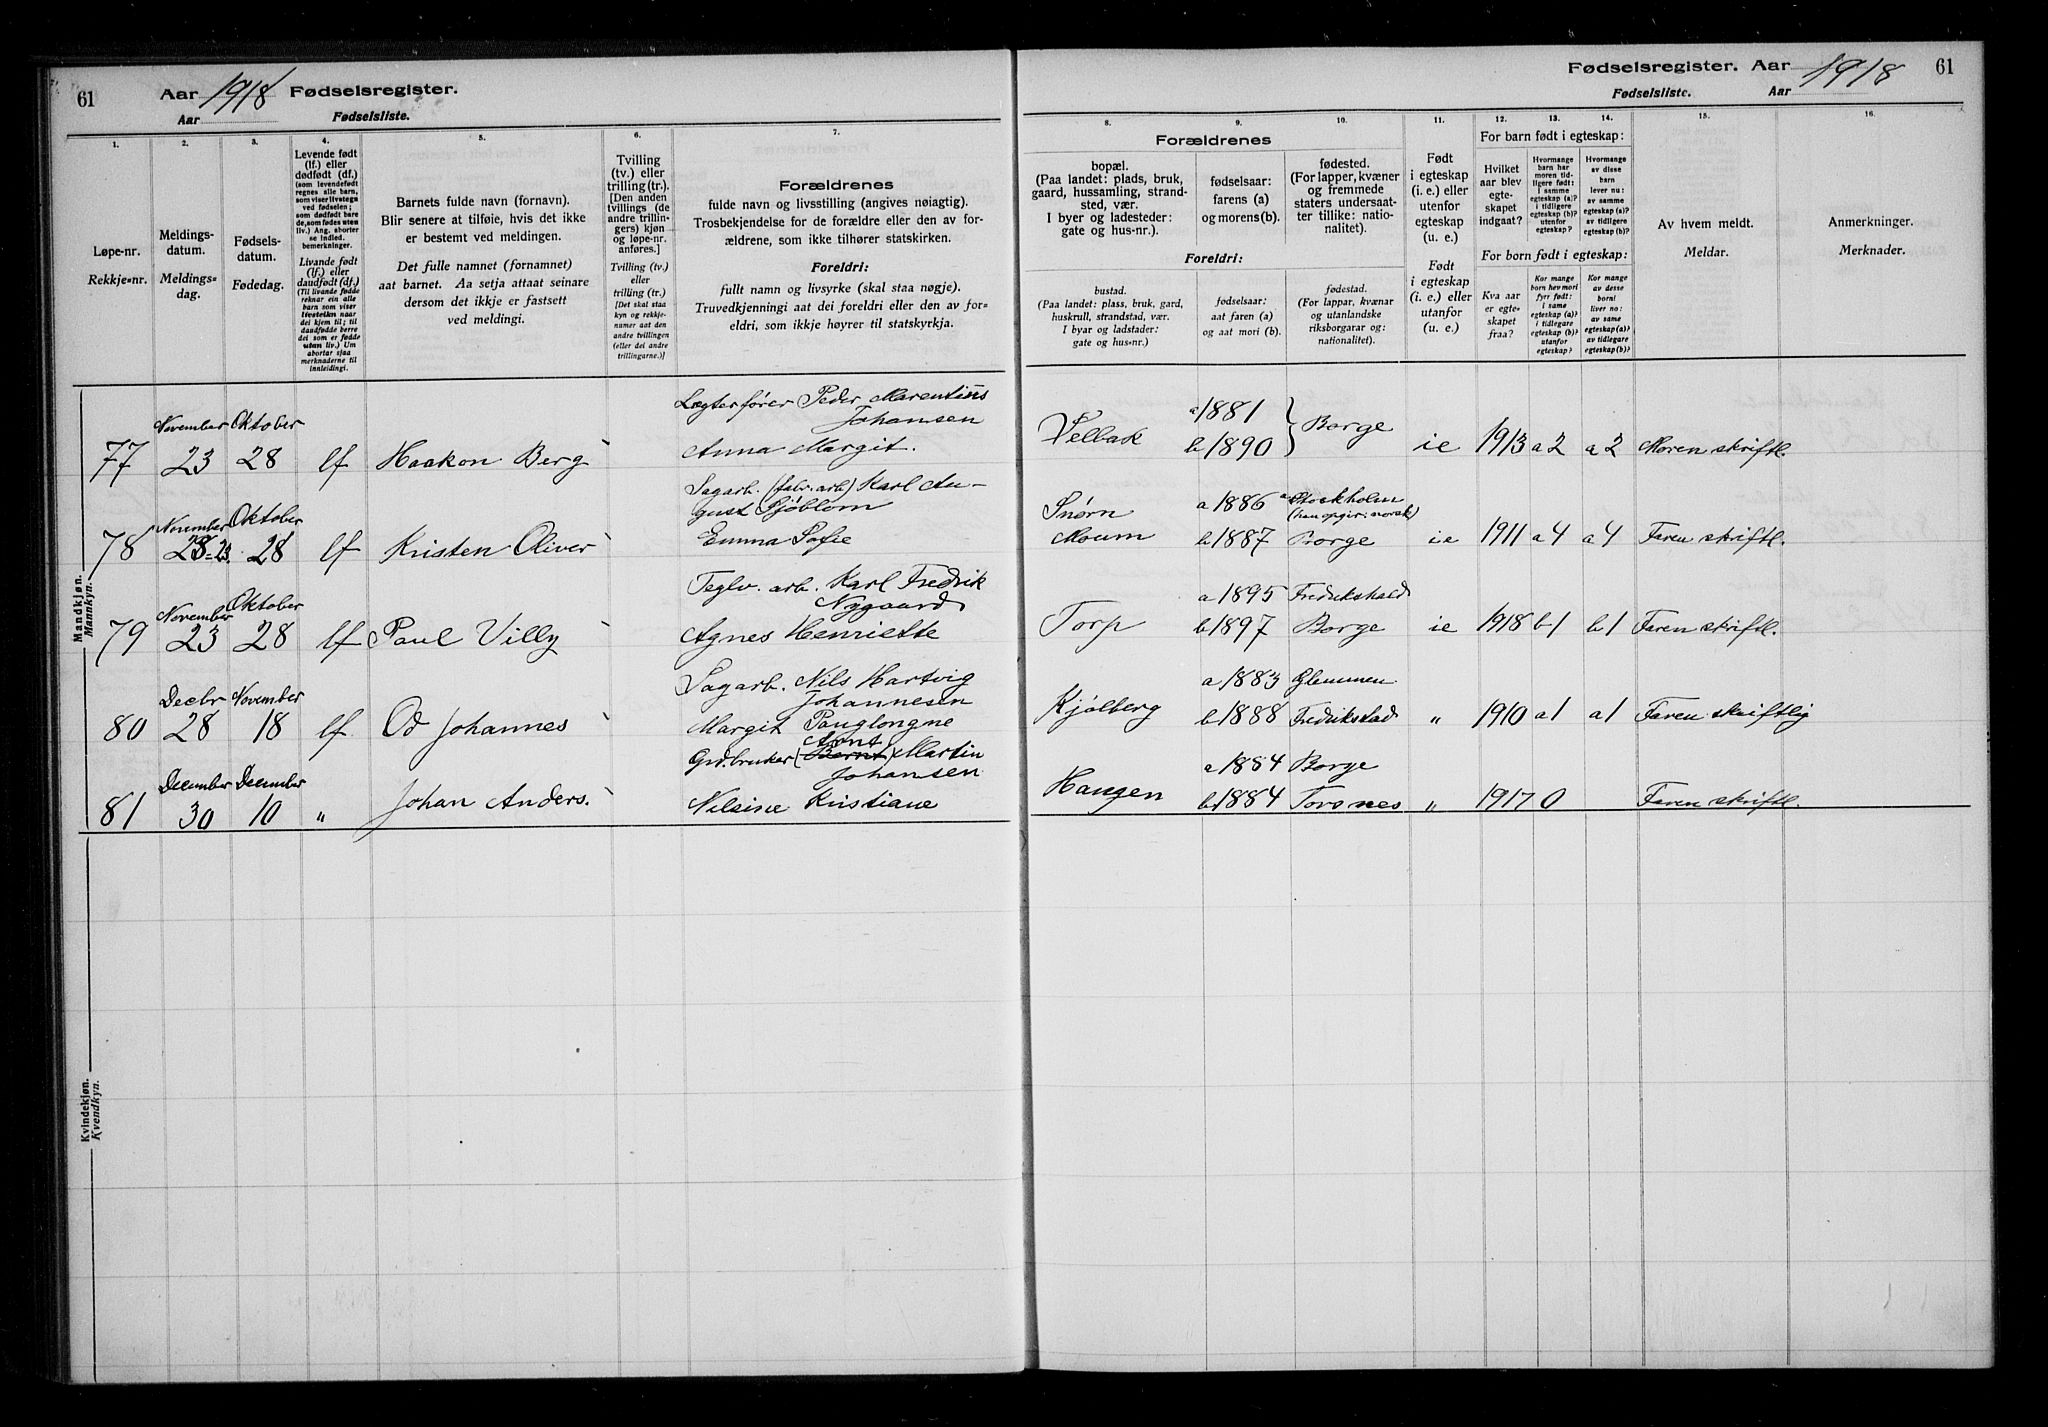 61
Aar 1918 Fødselsregister.
Aar Fødselsliste.
Fødselsregister. Aar 1918
61
Fødselsliste. Aar
1.
Løpe-nr.
Rekkje=nr.
2.
Meldings-
datum.
Meldings=
dag.
3.
Fødsels-
datum.
Fødedag.
4.
Levende født
(lf.) eller
dødfødt (df.)
(som levendefødt
regnes alle barn,
som viser livstegn
ved fødselen;
som dødfødt bare
de, som fødes uten
liv.) Ang. aborter
se indled.
bemerkninger.
Livande født
(lf.) eller
daudfødt (df.)
(Til livande fødde
reknar ein alle
born som viser
livsteikn naar
dei kjem til; til
daudfødde berre
dei som er fødde
utan liv.) Um
abortar sjaa
merknaderne til
innleidingi.
5.
Barnets fulde navn (fornavn).
Blir senere at tilføie, hvis det ikke
er bestemt ved meldingen.
Det fulle namnet (fornamnet)
aat barnet. Aa setja attaat seinare
dersom det ikkje er fastsett
ved meldingi.
6.
Tvilling
(tv.) eller
trilling (tr.).
[Den anden
tvillings (de
andre trillin-
gers) kjøn
og løpe-nr.
anføres.]
Tvilling (tv.)
eller
trilling (tr.)
[Det skal staa
kyn og rekkje-
numer aat den
andre tvillingen
(eller dei andre
trillingarne.)]
7.
Forældrenes
fulde navn og livsstilling (angives nøiagtig).
Trosbekjendelse for de forældre eller den av for-
ældrene, som ikke tilhører statskirken.
Foreldri:
fullt namn og livsyrke (skal staa nøgje).
Truvedkjenningi aat dei foreldri eller den av for=
eldri, som ikkje høyrer til statskyrkja.
8.
9.
10.
Forældrenes
bopæl.
(Paa landet: plads, bruk,
gaard, hussamling, strand-
sted, vær.
I byer og ladesteder:
gate og hus-nr.).
fødselsaar:
farens (a)
og morens (b).
fødested.
(For lapper, kvæner
og fremmede
staters undersaat-
ter tillike: natio-
nalitet).
Foreldri:
bustad.
(Paa landet: plass, bruk, gard,
huskrull, strandstad, vær.
I byar og ladstader:
gate og hus=nr.)
fødselsaar:
aat faren (a)
og aat mori (b).
fødestad.
(For lappar, kvænar
og utanlandske
riksborgarar og:
nationalitet).
11.
Født
i egteskap
(i. e.) eller
utenfor
egteskap
(u. e.)
Født
i egteskap
(i. e.) eller
utanfor
(u. e.)
12.
13.
14.
For barn født i egteskap:
Hvilket
aar blev
egte-
skapet
indgaat?
Hvormange
barn har
moren tid-
ligere født:
i samme
egteskap (a)?
i tidligere
egteskap (b)?
utenfor
egteskap?
Hvormange
av disse
barn
lever nu:
av samme
egteskap (a)?
av tidligere
egteskap (b)?
For born født i egteskap:
Kva aar
er egte-
skapet
fraa?
Kor mange
born hev mori
fyrr født:
i same
egteskap (a)?
i tidlegare
egteskap (b)?
utanfor
egteskap?
Kor mange
av desse
borni
liver no:
av same
egteskap (a)?
av tidlegare
egteskap (b)?
15.
Av hvem meldt.
Meldar.
16.
Anmerkninger.
Merknader.
Mandkjøn.
Mannkyn.
77 November 23 Oktober 28 lf Haakon Berg
Lægterfører Peder Marentius
Johansen
Anna Margit.
Velbak a 1881 b 1890 } Borge ie 1913 a 2 a 2 Moren skriftl.
78 November 28=23. Oktober 28 lf Kristen Oliver
Sagarb. (fabr. arb) Karl Au-
gust Sjöblom
Emma Sofie
Snørn
Moum
a 1886 a Stockholm
(han opgir: norsk)
b 1887 Borge i e 1911 a 4 a 4 Faren skriftl.
79 November 23 Oktober 28 lf Paul Villy
Teglv. arb. Karl Fredrik
Nygaard
Agnes Henriette
Torp a 1895 Fredrikshald
b 1897 Borge ie 1918 b 1 b 1 Faren skriftl.
80 Decbr 28 November 18 lf. Od Johannes
Sagarb. Nils Hartvig
Johannesen
Margit Pauglongne
Kjølberg a 1883 Glemmen
b 1888 Fredrikstad " 1910 a 1 a 1 Faren skriftlig
81 December 30 December 10 " Johan Anders.
Arnt
Grd.bruker (Bernt) Martin
Johansen
Nilsine Kristiane
Haugen a 1884 Borge
b 1884 Torsnes " 1917 0 Faren skriftl.
Kvindekjøn.
Kvendkyn.